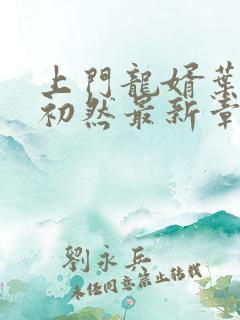 上門龍婿葉
初然最新章
劉永兵
未經同意禁止轉載